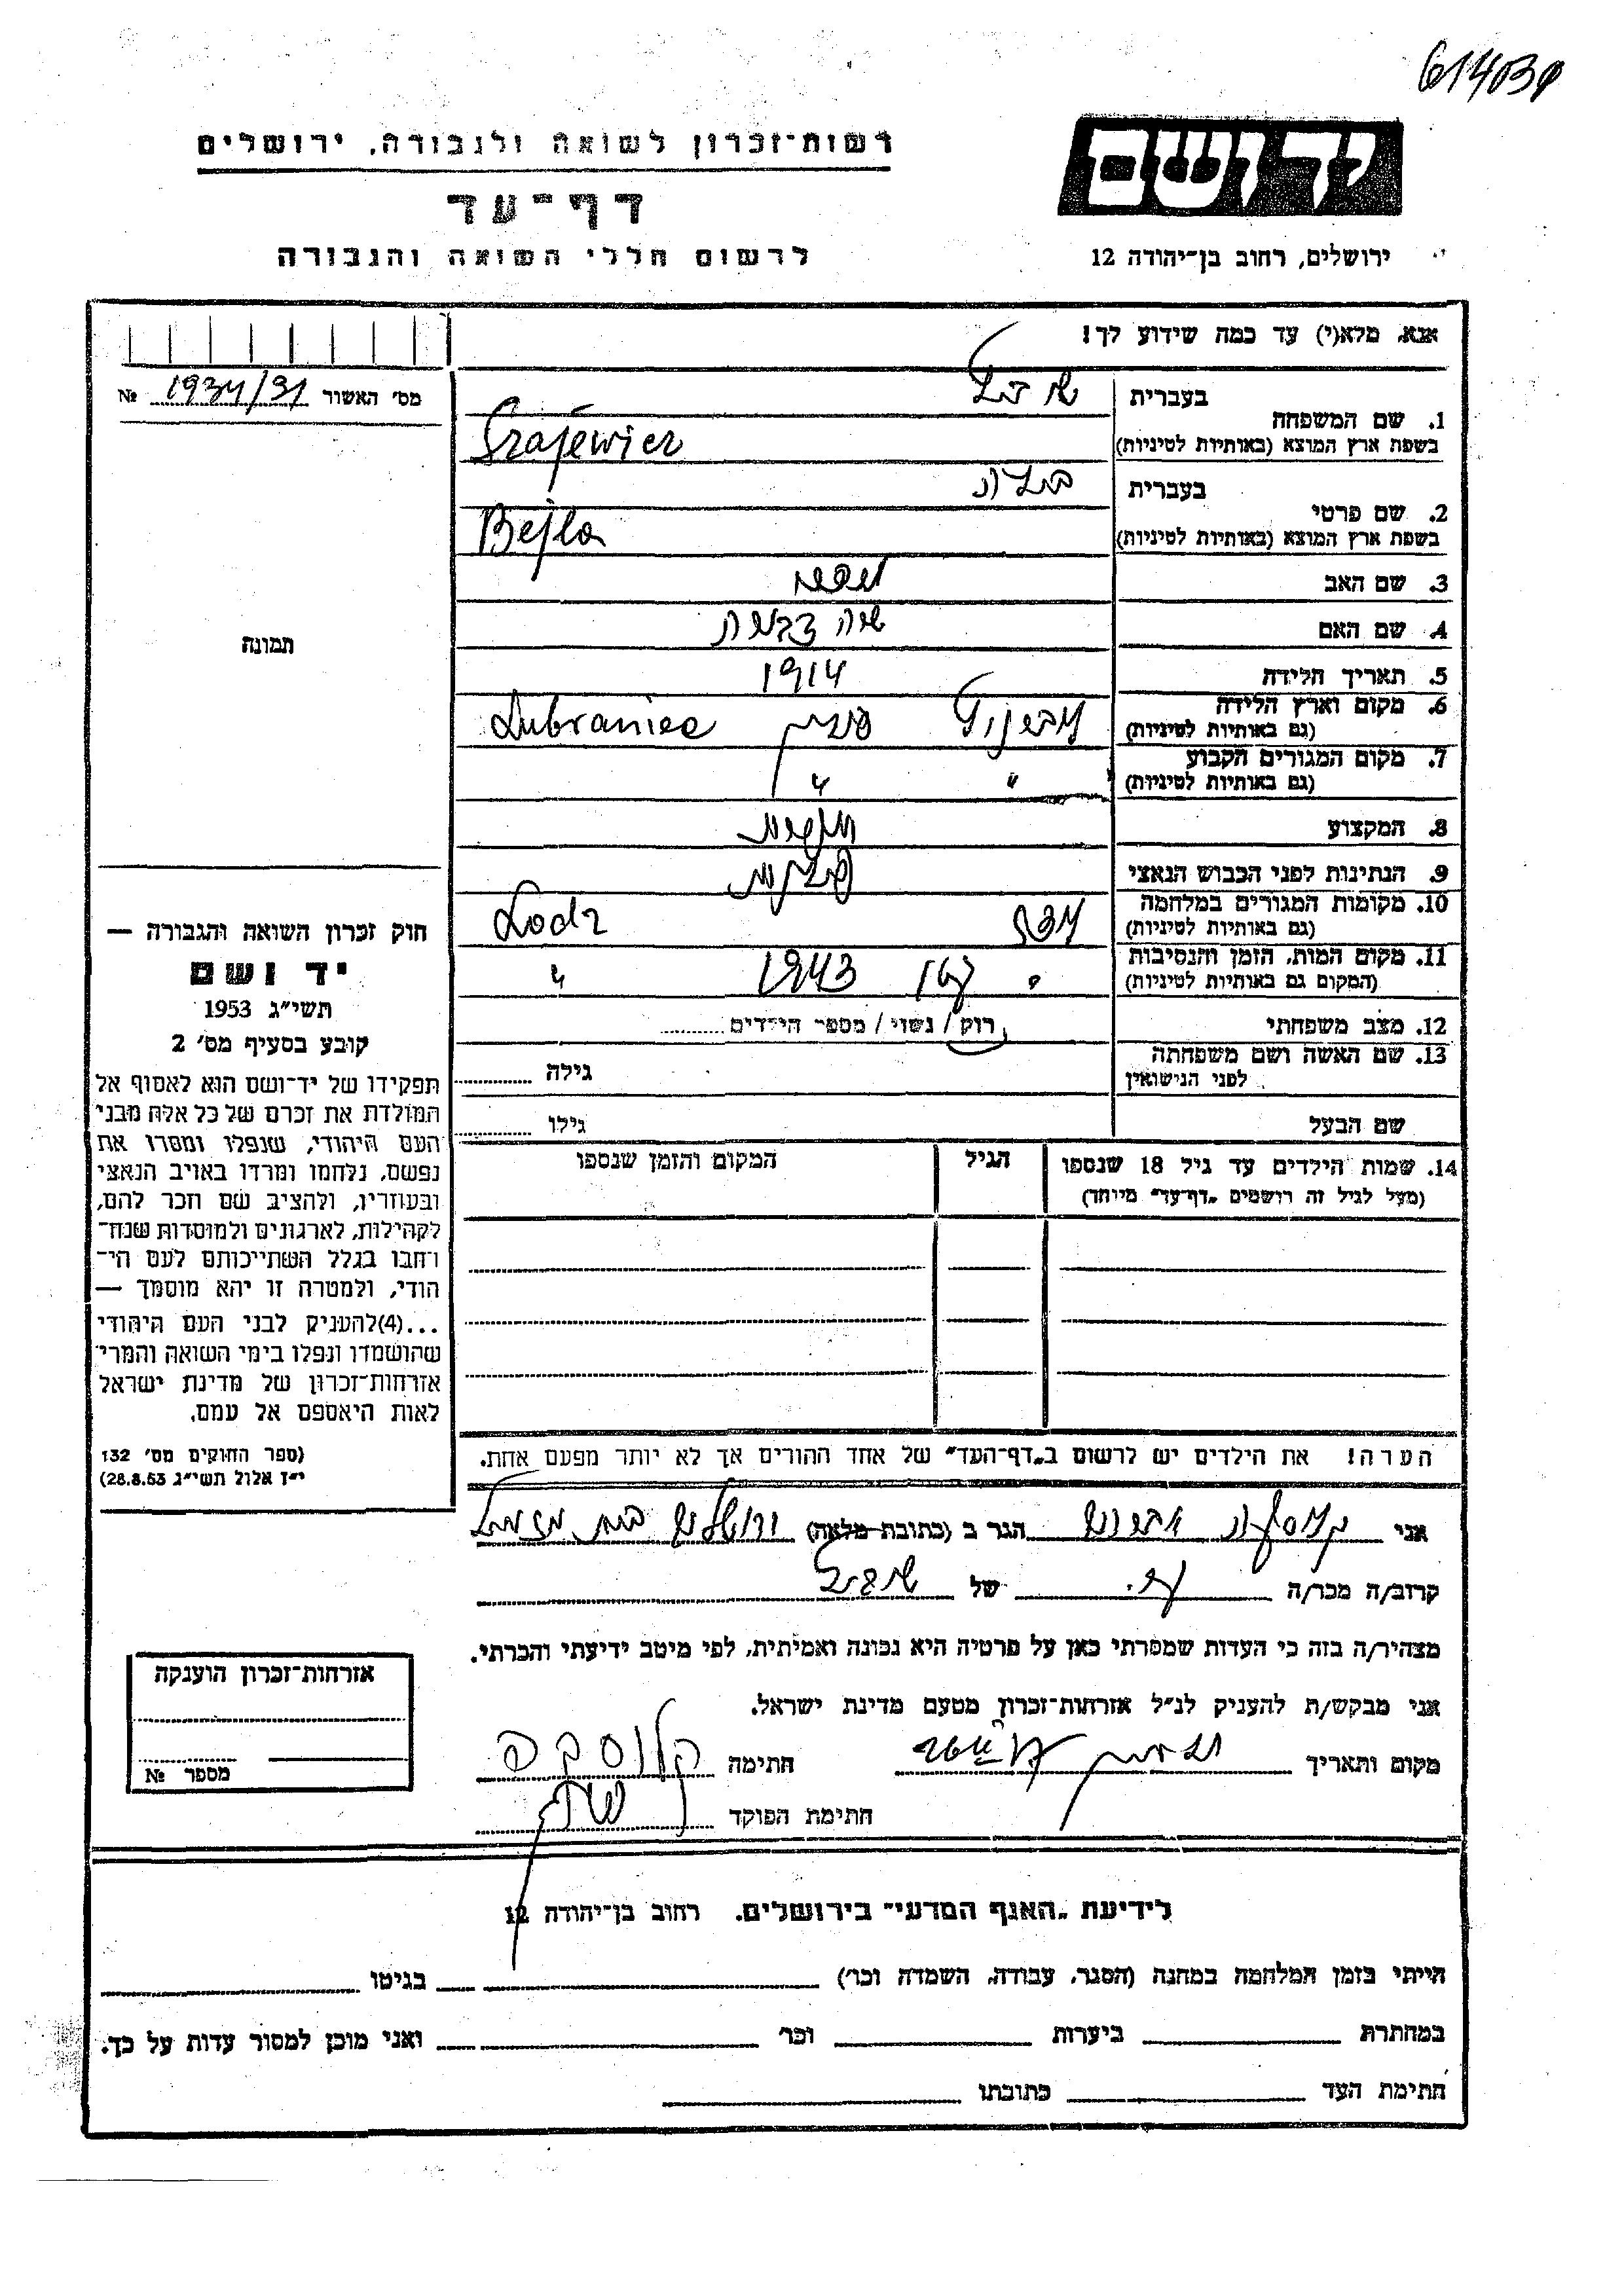 614030
ידושם
רשות־זכרון לשואה ולגבורה, ירושלים
דף־עד
לרשום חללי השואה והגבורה
ירושלים, רחוב בן־יהודה 12
אנא, מלא(י) עד כמה שידוע לך!
מס׳ האשור 1934/31 №
תמונה
בעברית
1. שם המשפחה
בשפת ארץ המוצא (באותיות לטיניות) Szajewicz
בעברית ביילה
2. שם פרטי
בשפת ארץ המוצא (באותיות לטיניות) Bejla
3. שם האב
4. שם האם
5. תאריך הלידה 1914
6. מקום וארץ הלידה פולין Lubraniec
(גם באותיות לטיניות)
7. מקום המגורים הקבוע " "
(גם באותיות לטיניות)
8. המקצוע
9. הנתינות לפני הכבוש הנאצי פולנית
10. מקומות המגורים במלחמה לודז Lodz
(גם באותיות לטיניות)
11. מקום המות, הזמן והנסיבות " גטו 1943 "
(המקום גם באותיות לטיניות)
12. מצב משפחתי רוק / נשוי / מספר הילדים
13. שם האשה ושם משפחתה
לפני הנישואין גילה
שם הבעל גילו
14. שמות הילדים עד גיל 18 שנספו הגיל המקום והזמן שנספו
(מעל לגיל זה רושמים „דף־עד" מיוחד)
הערה! את הילדים יש לרשום ב„דף־העד" של אחד ההורים אך לא יותר מפעם אחת.
חוק זכרון השואה והגבורה —
יד ושם
תשי״ג 1953
קובע בסעיף מס׳ 2
תפקידו של יד־ושם הוא לאסוף אל
המולדת את זכרם של כל אלה מבני
העם היהודי, שנפלו ומסרו את
נפשם, נלחמו ומרדו באויב הנאצי
ובעוזריו, ולהציב שם וזכר להם,
לקהילות, לארגונים ולמוסדות שנח־
רחבו בגלל השתייכותם לעם הי־
הודי, ולמטרה זו יהא מוסמך —
...(4)להעניק לבני העם היהודי
שהושמדו ונפלו בימי השואה והמרי
אזרחות־זכרון של מדינת ישראל
לאות היאספם אל עמם.
(ספר החוקים מס׳ 132
י״ז אלול תשי״ג 28.8.53)
אני הגר ב (כתובת מלאה) ירושלים
קרוב/ה מכר/ה של
מצהיר/ה בזה כי העדות שמסרתי כאן על פרטיה היא נכונה ואמיתית, לפי מיטב ידיעתי והכרתי.
אני מבקש/ת להעניק לנ״ל אזרחות־זכרון מטעם מדינת ישראל.
מקום ותאריך חתימה
חתימת הפוקד
אזרחות־זכרון הוענקה
מספר №
לידיעת „האגף המדעי" בירושלים. רחוב בן־יהודה 12
הייתי בזמן המלחמה במחנה (הסגר, עבודה, השמדה וכו׳) בגיטו
במחתרת ביערות וכו׳ ואני מוכן למסור עדות על כך.
חתימת העד כתובתו